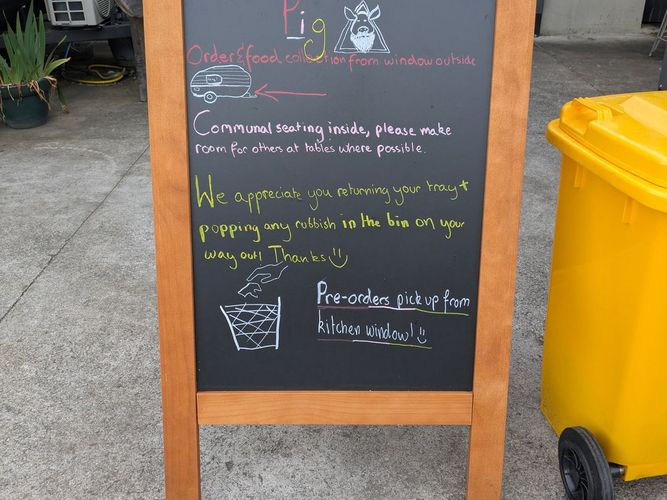 Pig
Order & food collection from window outside
Communal seating inside, please make
room for others at tables where possible.
We appreciate you returning your tray +
popping any rubbish in the bin on your
way out! Thanks
Pre-orders pick up from
kitchen window!